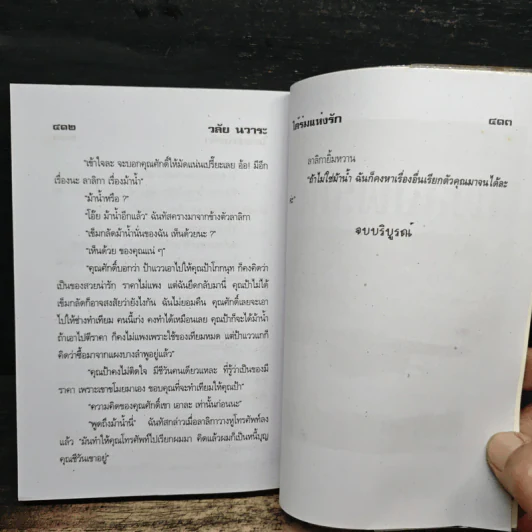 ๔๑๒ วลัย นวาระ
"เข้าใจละ จะบอกคุณศักดิ์ให้มัดแน่นเปรี๊ยะเลย อ้อ! มีอีก
เรื่องนะ ลาลิกา เรื่องม้าน้ำ"
"ม้าน้ำหรือ ?"
"โอ๊ย ม้าน้ำอีกแล้ว" ฉันทัสครางมาจากข้างตัวลาลิกา
"เข็มกลัดม้าน้ำนั่นของฉัน เห็นด้วยนะ ?"
"เห็นด้วย ของคุณแน่ ๆ"
"คุณศักดิ์บอกว่า ป้าแววเอาไปให้คุณป้าโกกนุท ก็คงคิดว่า
เป็นของสวยน่ารัก ราคาไม่แพง แต่ฉันยึดกลับมานี่ คุณป้าไม่ได้
เข็มกลัดก็อาจสงสัยว่ายังไงกัน ฉันไม่ยอมคืน คุณศักดิ์เลยจะเอา
ไปให้ช่างทำเทียม คนนี้เก่ง คงทำได้เหมือนเลย คุณป้าก็จะได้ม้าน้ำ
ถ้าเอาไปตีราคา ก็คงไม่แพงเพราะใช้ของเทียมหมด แต่ป้าแววแกก็
คิดว่าซื้อมาจากแผงบางลำพูอยู่แล้ว"
"คุณป้าคงไม่ติดใจ มีชีวันคนเดียวแหละ ที่รู้ว่าเป็นของมี
ราคา เพราะเขาขโมยมาเอง ชอบคุณที่จะทำเทียมให้คุณป้า"
"ความคิดของคุณศักดิ์เขา เอาละ เท่านั้นก่อนนะ"
"พูดถึงม้าน้ำนี่" ฉันทัสกล่าวเมื่อลาลิกาวางหูโทรศัพท์ลง
แล้ว "มันทำให้คุณโทรศัพท์ไปเรียกผมมา คิดแล้วผมก็เป็นหนี้บุญ
คุณชีวันเขาอยู่"
ใต้ร่มแห่งรัก ๔๑๓
ลาลิกายิ้มหวาน
"ถ้าไม่ใช่ม้าน้ำ ฉันก็คงหาเรื่องอื่นเรียกตัวคุณมาจนได้ละ
จบบริบูรณ์